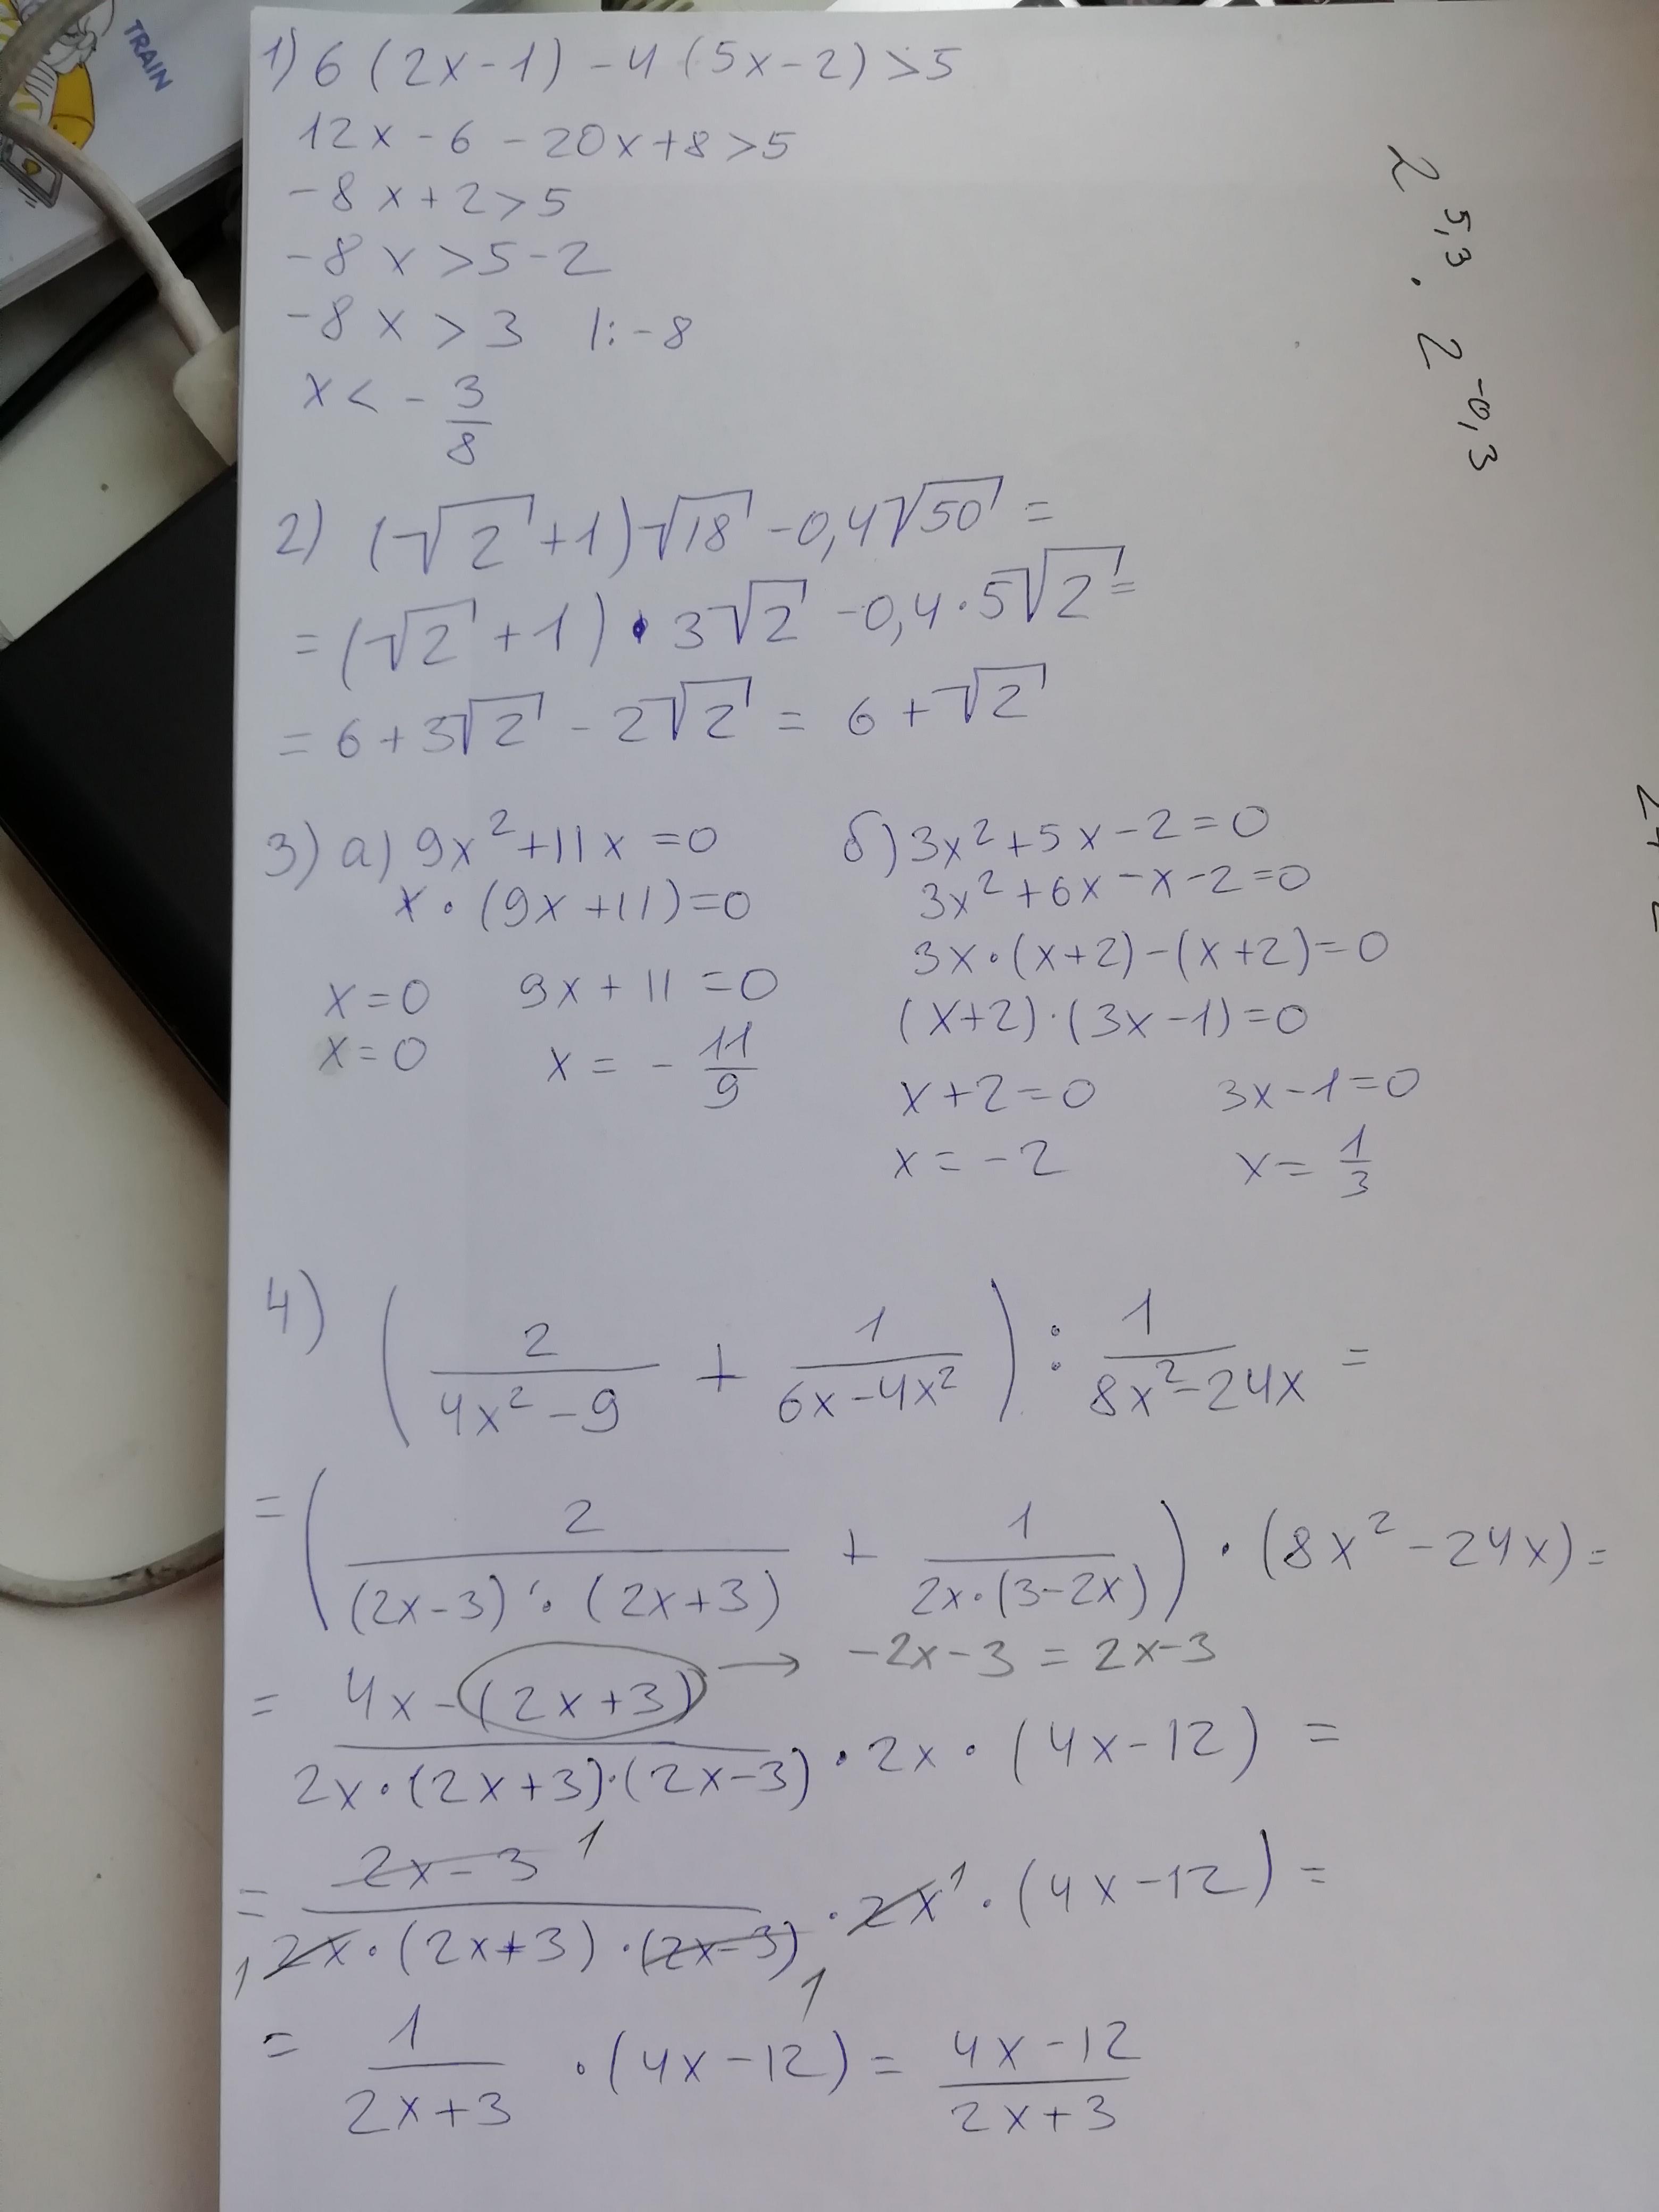 TRAIN
1) 6 (2x-1) -4 (5x-2) >5
12x -6 -20x+8>5
-8x+2>5
-8x >5-2
-8x > 3 |: -8
x < - 3/8
2) (√2 +1)√18 -0,4√50 =
= (√2 +1) • 3√2 -0,4·5√2 =
= 6+3√2 - 2√2 = 6+√2
3) a) 9x²+11x =0
x • (9x+11)=0
x=0 9x+11=0
x=0 x = - 11/9
б) 3x²+5x-2=0
3x²+6x-x-2=0
3x•(x+2)-(x+2)=0
(x+2)·(3x-1)=0
x+2=0 3x-1=0
x=-2 x= 1/3
4) (2/(4x²-9) + 1/(6x-4x²)) : 1/(8x²-24x) =
= (2/((2x-3)·(2x+3)) + 1/(2x·(3-2x))) · (8x²-24x) =
→ -2x-3 = 2x-3
= (4x-(2x+3))/(2x•(2x+3)·(2x-3)) • 2x • (4x-12) =
= (2x-3)¹/(₁2x•(2x+3)·(2x-3)₁) · 2x¹ · (4x-12) =
= 1/(2x+3) ·(4x-12) = (4x-12)/(2x+3)
2^5,3 · 2^-0,3